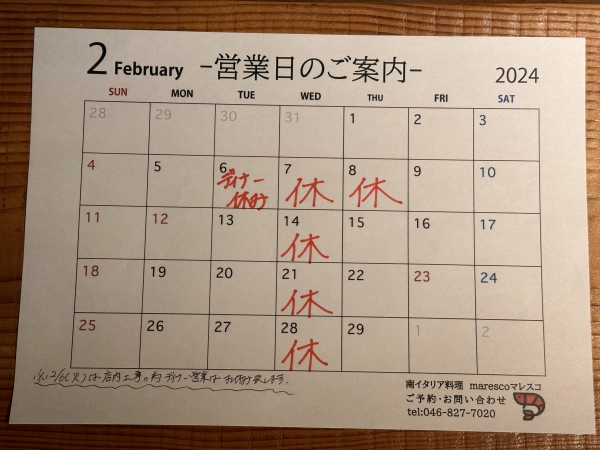 2 February -営業日のご案内- 2024
SUN MON TUE WED THU FRI SAT
28 29 30 31 1 2 3
4 5 6 7 8 9 10
ディナー 休 休
休み
11 12 13 14 15 16 17
休
18 19 20 21 22 23 24
休
25 26 27 28 29 1 2
休
2/6(火)は店内工事の為ディナー営業はお休み致します。
南イタリア料理 marescoマレスコ
ご予約・お問い合わせ
tel:046-827-7020